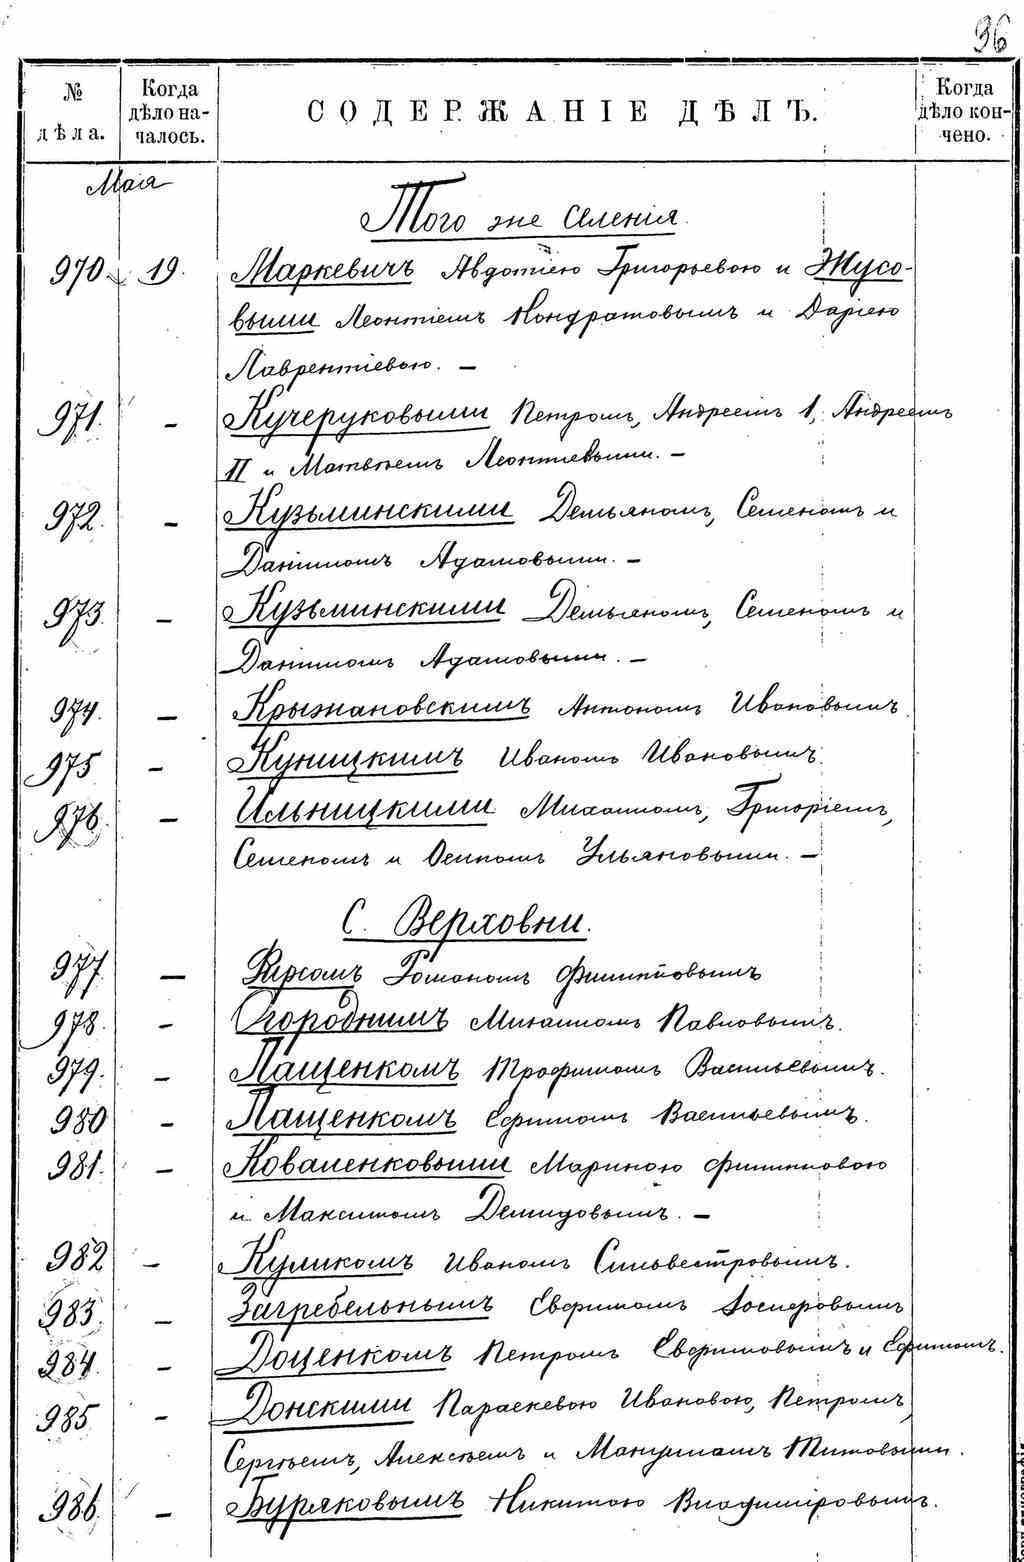 96
№ дѣла. Когда дѣло началось. СОДЕРЖАНІЕ ДѢЛЪ. Когда дѣло кончено.
Мая
Того же селенія.
970 19. Маркевичъ Авдотіею Григорьевою и Жусо-
выми Леонтіемъ Кондратовымъ и Даріею
Лаврентіевою. —
971. — Кучеруковыми Петромъ, Андреемъ 1, Андреемъ
II и Матвѣемъ Леонтіевыми. —
972. — Кузьминскими Демьяномъ, Семеномъ и
Даниломъ Адамовыми. —
973. — Кузьминскими Демьяномъ, Семеномъ и
Даниломъ Адамовыми. —
974. — Крыжановскимъ Антономъ Ивановымъ
975 — Куницкимъ Иваномъ Ивановымъ.
976. — Ильницкими Михаиломъ, Григоріемъ,
Семеномъ и Осипомъ Ульяновыми. —
С. Верховни.
977 — Романомъ Филиповымъ
978. — Огороднимъ Михаиломъ Павловымъ.
979. — Пащенкомъ Трофимомъ Васильевымъ.
980 — Пащенкомъ Ефимомъ Васильевымъ.
981. — Коваленковыми Мариною Филиповою
и Максимомъ Демидовымъ. —
982 — Куликомъ Иваномъ Сильвестровымъ.
983. — Загребельнымъ Евфимомъ Іосифовымъ
984. — Доценкомъ Петромъ Евфимовымъ и Ефимомъ.
985 — Донскими Параскевою Ивановою, Петромъ,
Сергѣемъ, Алексѣемъ и Мануиломъ Титовыми.
986. — Буряковымъ Никитою Владиміровымъ.